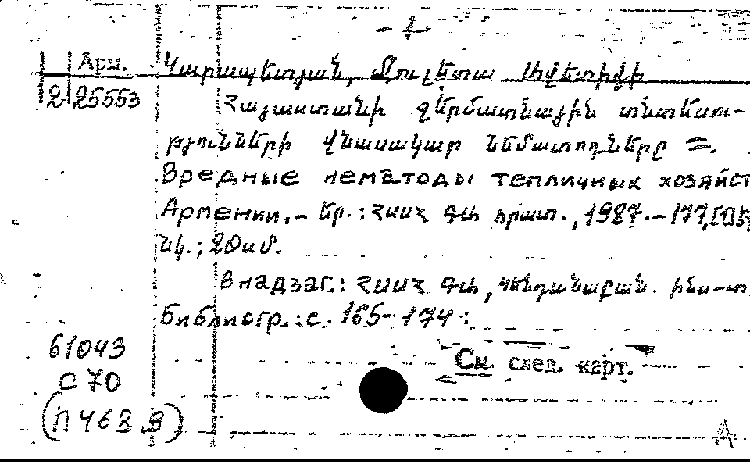 - 1 -
Арм. Կարապետյան, Ջուլետա Ավետիքի
2-25553 Հայաստանի ջերմատնային տնտեսու-
թյունների վնասակար նեմատոդները =.
Вредные нематоды тепличных хозяйст
Армении.- Եր.: ՀՍՍՀ ԳԱ հրատ., 1987.- 177,
նկ.; 20սմ.
В надзаг.: ՀՍՍՀ ԳԱ, Կենդանաբան. ինս-տ
Библиогр.: с. 165-174:
61043
С 70
(П 463.3)
См. след. карт.
А